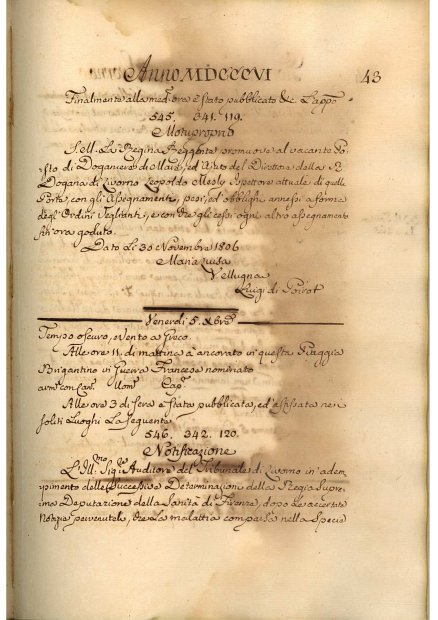 Anno MDCCCVI 43
Finalmente alla med.ª ora è stato pubblicato &c. L'app.º
545. 341. 119.
Motuproprio
S. M. La Regina Reggente promuove al vacante Po-
sto di Doganiere di Mare, ed Aiuto del Direttore della R.
Dogana di Livorno Leopoldo Ispettore attuale di quelle
Porte, con gli Assegnamenti, pesi, ed obblighi annessi a forma
degl' Ordini Veglianti, e con che gli cessi ogni altro assegnamento
fin' ora goduto.
Dato li 30 Novembre 1806
Maria Luisa
V. Mugna
Luigi di Poirot
Venerdì 5. Xbre
Tempo oscuro, e Vento a Greco.
Alle ore 11. di mattina à ancorato in questa Piaggia
Brigantino in Guerra Francese nominato
arm.º con Can. Uom. Cap.
Alle ore 3 di sera è stata pubblicata, ed' affissata nei
soliti Luoghi La seguente
546. 342. 120.
Notificazione
L'Ill.mo Sig.re Auditore del Tribunale di Livorno in adem-
pimento delle successive Determinazioni della Regia Supre-
ma Deputazione della Sanità di Firenze, dopo Le accertate
Notizie pervenutele, che La malattia comparsa nella Specie